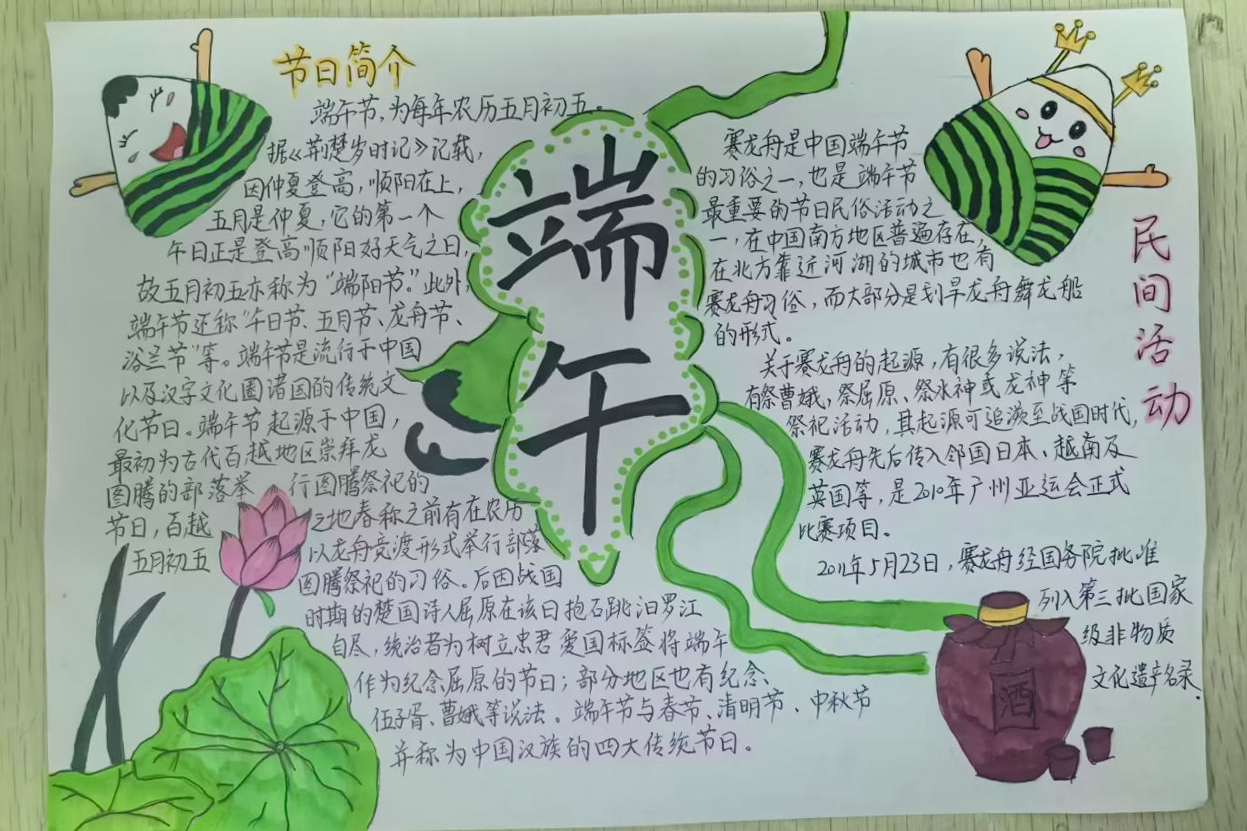 节日简介
端午节,为每年农历五月初五。
据《荆楚岁时记》记载,
因仲夏登高,顺阳在上,
五月是仲夏,它的第一个
午日正是登高顺阳好天气之日,
故五月初五亦称为“端阳节”。此外,
端午节还称“午日节、五月节、龙舟节、
浴兰节”等。端午节是流行于中国
以及汉字文化圈诸国的传统文
化节日。端午节起源于中国,
最初为古代百越地区崇拜龙
图腾的部落举行图腾祭祀的
节日,百越之地春称之前有在农历
五月初五以龙舟竞渡形式举行部落
图腾祭祀的习俗。后因战国
时期的楚国诗人屈原在该日抱石跳汨罗江
自尽,统治者为树立忠君爱国标签将端午
作为纪念屈原的节日;部分地区也有纪念
伍子胥、曹娥等说法。端午节与春节、清明节、中秋节
并称为中国汉族的四大传统节日。
端
午
民间活动
赛龙舟是中国端午节
的习俗之一,也是端午节
最重要的节日民俗活动之
一,在中国南方地区普遍存在,
在北方靠近河湖的城市也有
赛龙舟习俗,而大部分是划旱龙舟舞龙船
的形式。
关于赛龙舟的起源,有很多说法,
有祭曹娥,祭屈原、祭水神或龙神等
祭祀活动,其起源可追溯至战国时代,
赛龙舟先后传入邻国日本、越南及
英国等,是2010年广州亚运会正式
比赛项目。
2011年5月23日,赛龙舟经国务院批准
列入第三批国家
级非物质
文化遗产名录.
酒